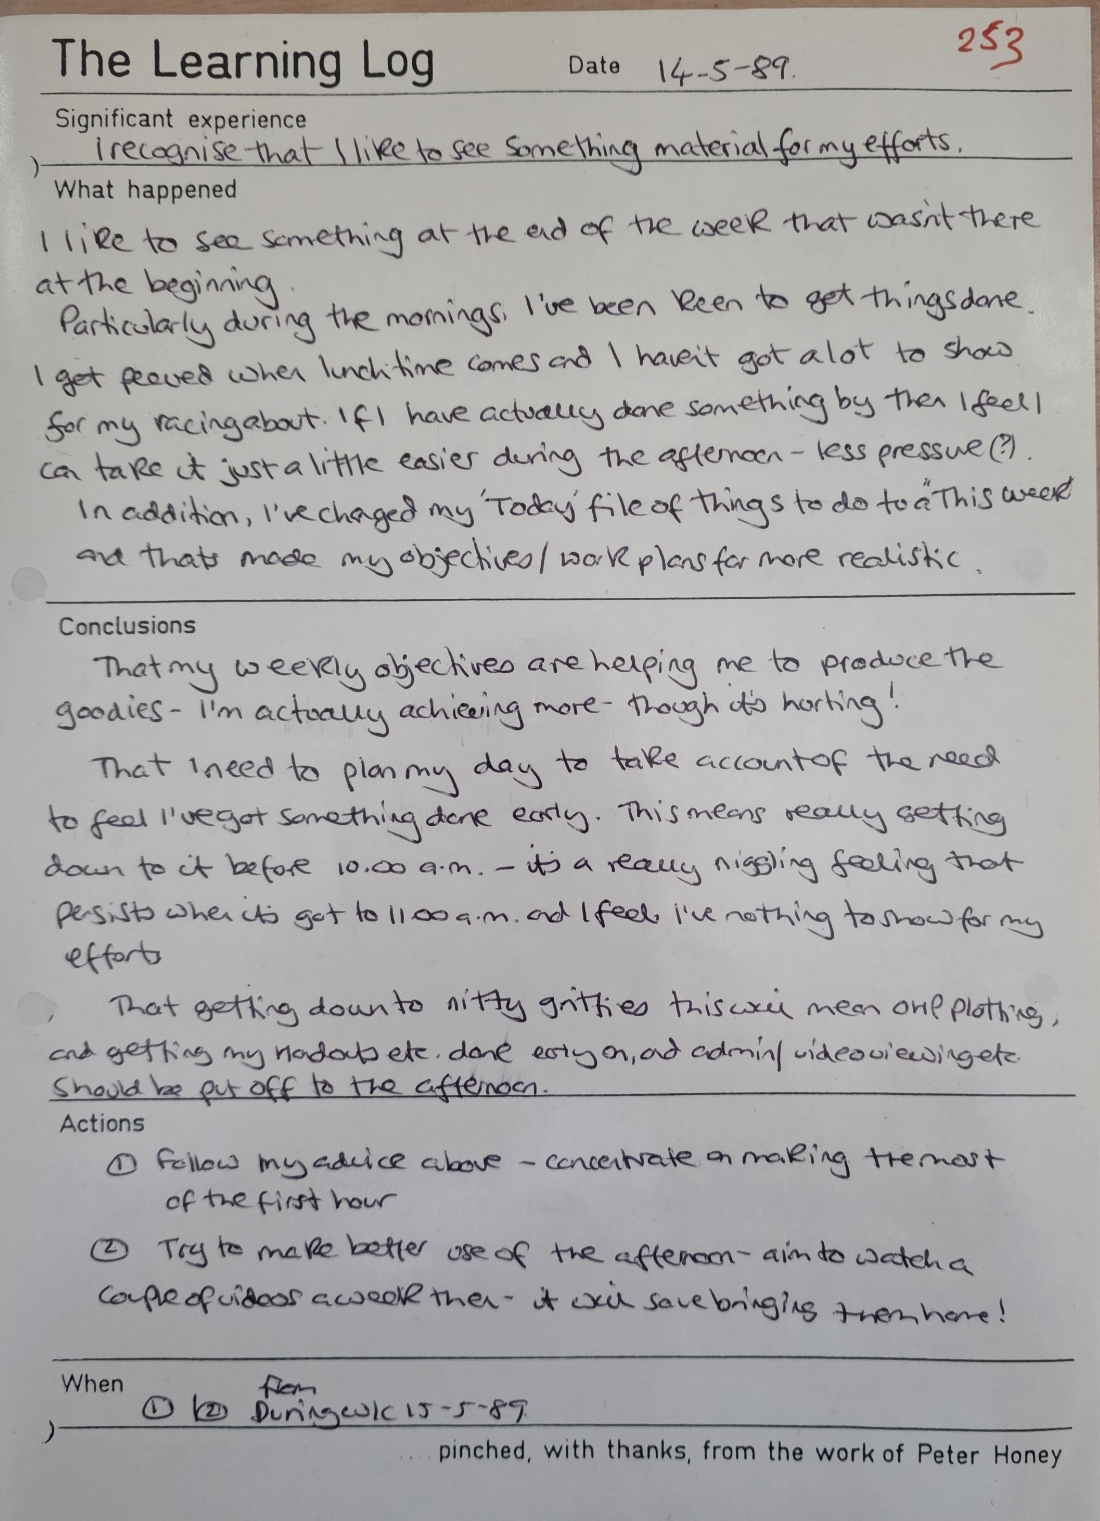 The Learning Log
Date 14-5-89.
253
Significant experience
I recognise that I like to see something material for my efforts.
What happened
I like to see something at the end of the week that wasn't there
at the beginning.
Particularly during the mornings, I've been keen to get things done.
I get peeved when lunchtime comes and I haven't got a lot to show
for my racing about. If I have actually done something by then I feel I
can take it just a little easier during the afternoon - less pressure (?).
In addition, I've changed my 'Today' file of things to do to a "This week"
and that's made my objectives/work plans far more realistic.
Conclusions
That my weekly objectives are helping me to produce the
goodies - I'm actually achieving more - though it's hurting!
That I need to plan my day to take account of the need
to feel I've got something done early. This means really getting
down to it before 10.00 a.m. - it's a really niggling feeling that
persists when it's got to 11.00 a.m. and I feel I've nothing to show for my
efforts
That getting down to nitty gritties this will mean OHP plotting,
and getting my handouts etc. done early on, and admin/video viewing etc.
should be put off to the afternoon.
Actions
① Follow my advice above - concentrate on making the most
of the first hour
② Try to make better use of the afternoon - aim to watch a
couple of videos a week then - it will save bringing them home!
When
from
① ② During w/c 15-5-89.
.... pinched, with thanks, from the work of Peter Honey